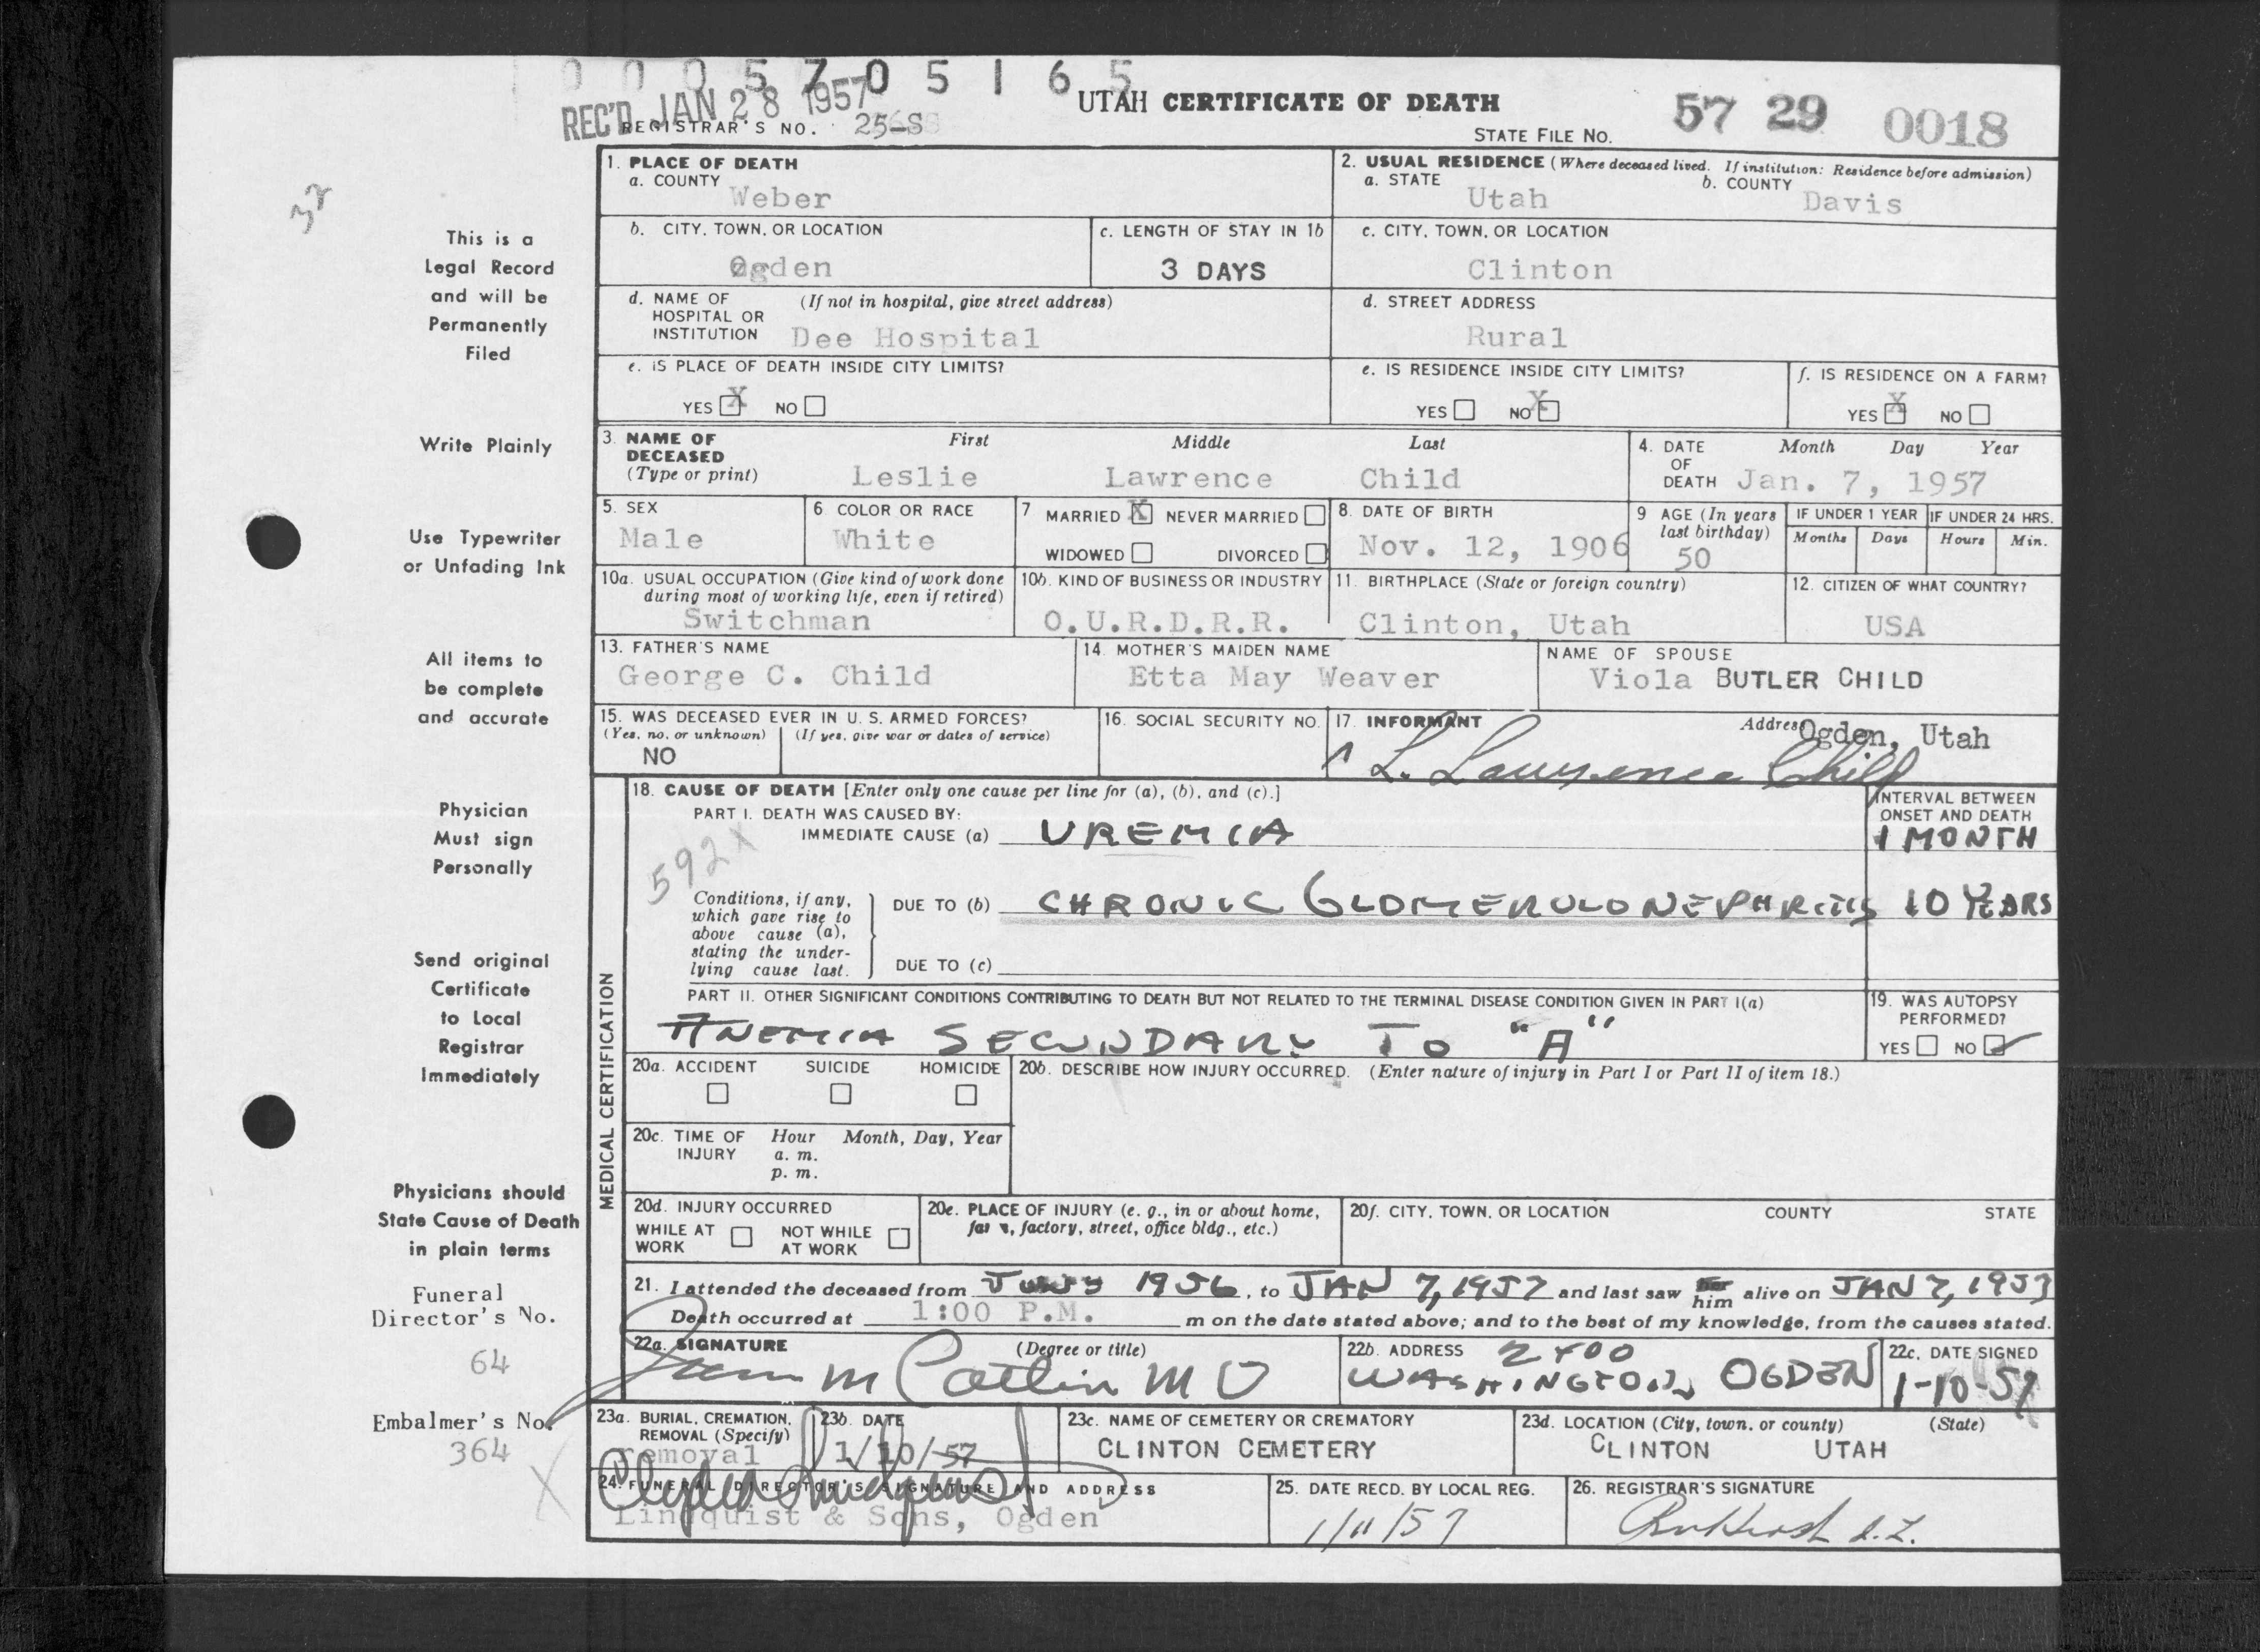 0 0 0 5 7 0 5 1 6 5
REC'D JAN 28 1957
UTAH CERTIFICATE OF DEATH
REGISTRAR'S NO. 25-S
STATE FILE NO. 57 29 0018
This is a
Legal Record
and will be
Permanently
Filed
Write Plainly
Use Typewriter
or Unfading Ink
All items to
be complete
and accurate
Physician
Must sign
Personally
Send original
Certificate
to Local
Registrar
Immediately
Physicians should
State Cause of Death
in plain terms
Funeral
Director's No.
64
Embalmer's No.
364
1. PLACE OF DEATH
a. COUNTY
Weber
2. USUAL RESIDENCE (Where deceased lived. If institution: Residence before admission)
a. STATE
Utah
b. COUNTY
Davis
b. CITY, TOWN, OR LOCATION
Ogden
c. LENGTH OF STAY IN 1b
3 DAYS
c. CITY, TOWN, OR LOCATION
Clinton
d. NAME OF (If not in hospital, give street address)
HOSPITAL OR
INSTITUTION Dee Hospital
d. STREET ADDRESS
Rural
e. IS PLACE OF DEATH INSIDE CITY LIMITS?
YES X NO
e. IS RESIDENCE INSIDE CITY LIMITS?
YES NO X
f. IS RESIDENCE ON A FARM?
YES X NO
3. NAME OF DECEASED
(Type or print)
First Middle Last
Leslie Lawrence Child
4. DATE OF DEATH
Month Day Year
Jan. 7, 1957
5. SEX
Male
6. COLOR OR RACE
White
7 MARRIED X NEVER MARRIED
WIDOWED DIVORCED
8. DATE OF BIRTH
Nov. 12, 1906
9 AGE (In years
last birthday)
50
IF UNDER 1 YEAR
Months Days
IF UNDER 24 HRS.
Hours Min.
10a. USUAL OCCUPATION (Give kind of work done
during most of working life, even if retired)
Switchman
10b. KIND OF BUSINESS OR INDUSTRY
O.U.R.D.R.R.
11. BIRTHPLACE (State or foreign country)
Clinton, Utah
12. CITIZEN OF WHAT COUNTRY?
USA
13. FATHER'S NAME
George C. Child
14. MOTHER'S MAIDEN NAME
Etta May Weaver
NAME OF SPOUSE
Viola BUTLER CHILD
15. WAS DECEASED EVER IN U. S. ARMED FORCES?
(Yes, no, or unknown) (If yes, give war or dates of service)
NO
16. SOCIAL SECURITY NO.
17. INFORMANT Address
Ogden, Utah
L. Lawrence Child
MEDICAL CERTIFICATION
18. CAUSE OF DEATH [Enter only one cause per line for (a), (b), and (c).]
PART I. DEATH WAS CAUSED BY:
IMMEDIATE CAUSE (a) UREMIA
INTERVAL BETWEEN
ONSET AND DEATH
1 MONTH
592X
Conditions, if any,
which gave rise to
above cause (a),
stating the under-
lying cause last.
DUE TO (b) CHRONIC GLOMERULONEPHRITIS 10 YEARS
DUE TO (c)
PART II. OTHER SIGNIFICANT CONDITIONS CONTRIBUTING TO DEATH BUT NOT RELATED TO THE TERMINAL DISEASE CONDITION GIVEN IN PART I(a)
ANEMIA SECONDARY TO "A"
19. WAS AUTOPSY
PERFORMED?
YES NO ✓
20a. ACCIDENT SUICIDE HOMICIDE
20b. DESCRIBE HOW INJURY OCCURRED. (Enter nature of injury in Part I or Part II of item 18.)
20c. TIME OF INJURY
Hour Month, Day, Year
a. m.
p. m.
20d. INJURY OCCURRED
WHILE AT WORK
NOT WHILE AT WORK
20e. PLACE OF INJURY (e. g., in or about home,
farm, factory, street, office bldg., etc.)
20f. CITY, TOWN, OR LOCATION COUNTY STATE
21. I attended the deceased from 1956, to JAN 7, 1957 and last saw her him alive on JAN 7, 1957
Death occurred at 1:00 P.M. m on the date stated above; and to the best of my knowledge, from the causes stated.
22a. SIGNATURE (Degree or title)
M Catlin MD
22b. ADDRESS 2400
WASHINGTON, OGDEN
22c. DATE SIGNED
1-10-57
23a. BURIAL, CREMATION,
REMOVAL (Specify)
removal
23b. DATE
1/10/57
23c. NAME OF CEMETERY OR CREMATORY
CLINTON CEMETERY
23d. LOCATION (City, town, or county) (State)
CLINTON UTAH
24. FUNERAL DIRECTOR'S SIGNATURE AND ADDRESS
Lindquist & Sons, Ogden
25. DATE RECD. BY LOCAL REG.
1/11/57
26. REGISTRAR'S SIGNATURE